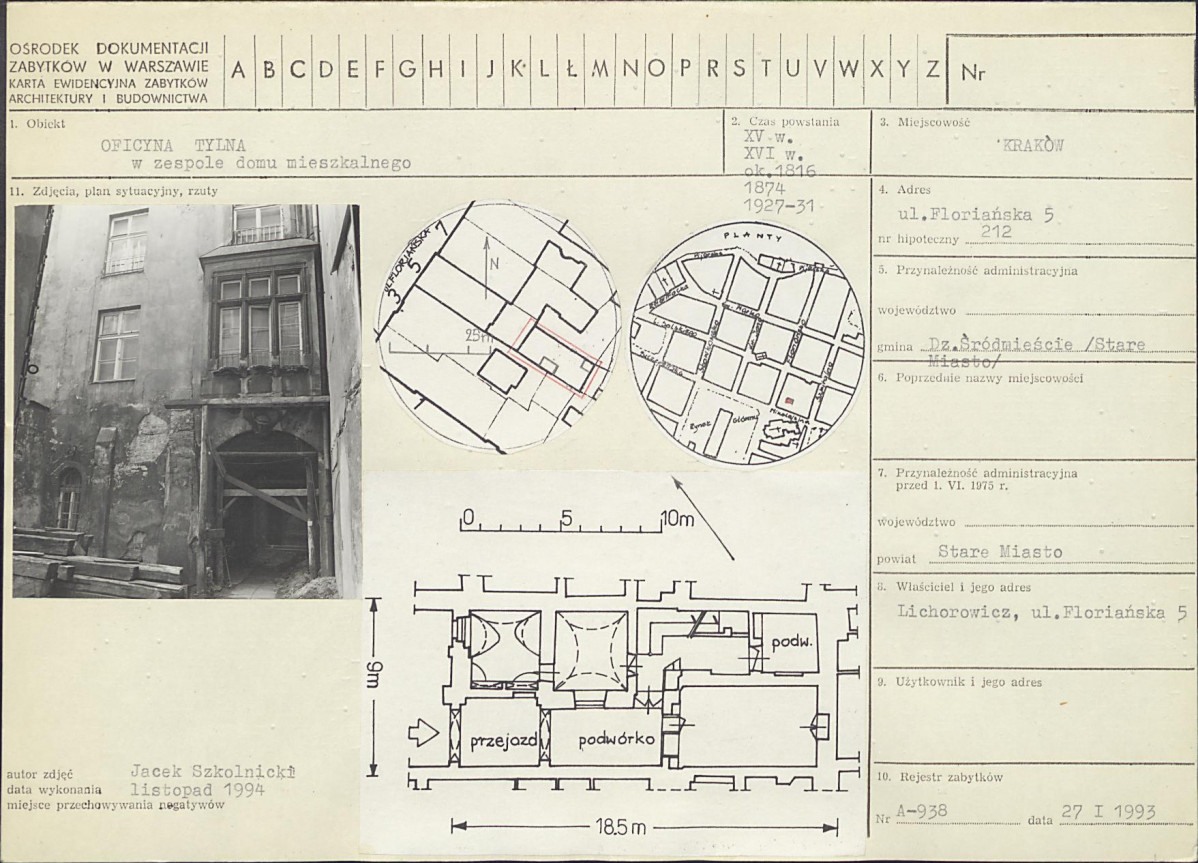 OŚRODEK DOKUMENTACJI
ZABYTKÓW W WARSZAWIE
KARTA EWIDENCYJNA ZABYTKÓW
ARCHITEKTURY I BUDOWNICTWA
A B C D E F G H I J K L Ł M N O P R S T U V W X Y Z
Nr
1. Obiekt
OFICYNA TYLNA
w zespole domu mieszkalnego
2. Czas powstania
XV w.
XVI w.
ok.1816
1874
1927-31
3. Miejscowość
KRAKÓW
11. Zdjęcia, plan sytuacyjny, rzuty
4. Adres
ul.Floriańska 5
nr hipoteczny 212
5. Przynależność administracyjna
województwo
gmina Dz.Śródmieście /Stare
Miasto/
6. Poprzednie nazwy miejscowości
7. Przynależność administracyjna
przed 1. VI. 1975 r.
województwo
powiat Stare Miasto
8. Właściciel i jego adres
Lichorowicz, ul.Floriańska 5
9. Użytkownik i jego adres
10. Rejestr zabytków
Nr A-938 data 27 I 1993
UL.FLORIAŃSKA
3 5 7
N
25m
PLANTY
Rynek Główny
Mikołajska
0 5 10m
9m
podw.
przejazd
podwórko
18.5m
autor zdjęć Jacek Szkolnicki
data wykonania listopad 1994
miejsce przechowywania negatywów